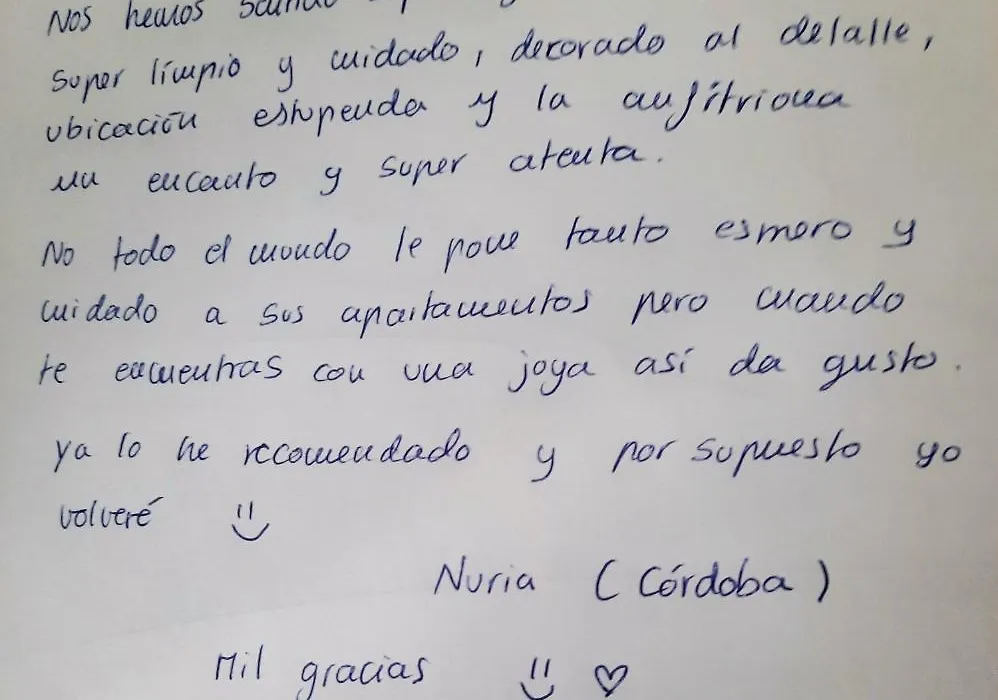 Nos hemos
super límpio y cuidado, decorado al detalle,
ubicación estupenda y la anfitriona
un encanto y super atenta.
No todo el mundo le pone tanto esmero y
cuidado a sus apartamentos pero cuando
te encuentras con una joya así da gusto.
ya lo he recomendado y por supuesto yo
volveré
Nuria (Córdoba)
Mil gracias